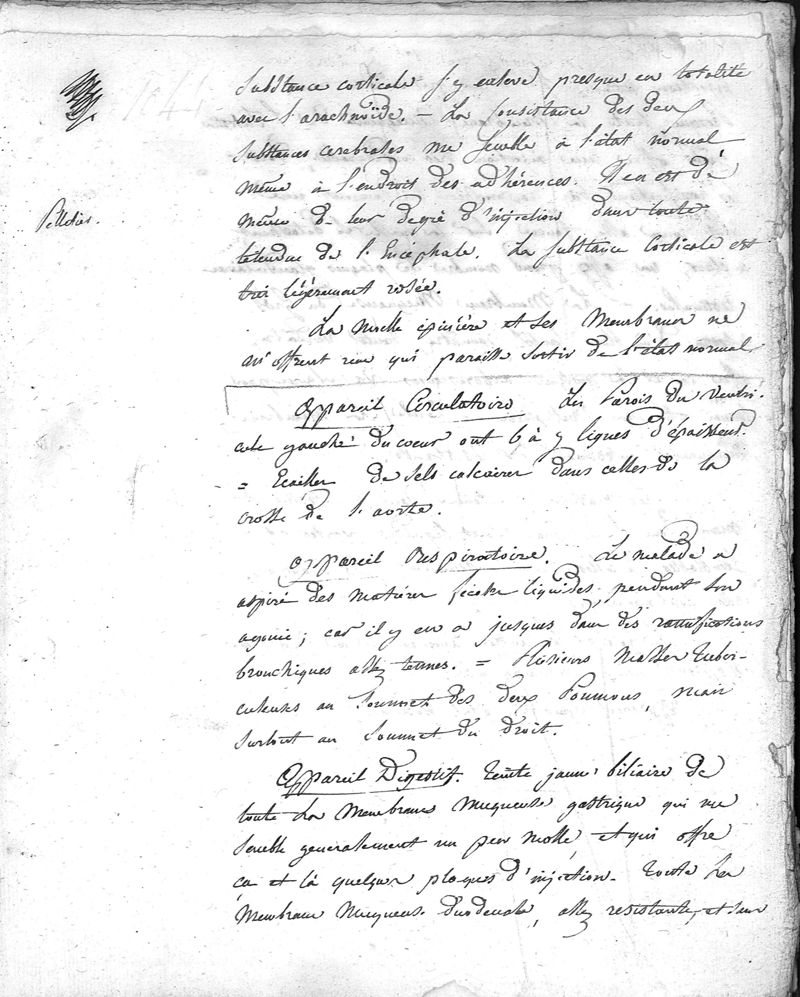 substance corticale s'y enleve presque en totalité
avec l'arachnoïde. – La consistance des deux
substances cerebrales me semble à l'état normal
même à l'endroit des adhérences. Il en est de
Pelletier.
même de leur degré d'injection dans toute
l'etendue de l'Encéphale. La substance corticale est
très légérement rosée.
La Moelle épinière et ses Membranes ne
m'offrent rien qui paraisse sortir de l'état normal
Appareil Circulatoire Les Parois du Ventri-
cule gauche du coeur ont 6 à 7 lignes d'épaisseur.
= Ecailles de sels calcaires dans celles de la
crosse de l'aorte.
Appareil Respiratoire. Le malade a
aspiré des matières liquides, pendant son
agonie; car il y en a jusques dans des ramifications
bronchiques assez tenues. = Plusieurs Masses tuber-
culeuses au Sommet des deux Poumons, mais
surtout au Sommet du droit.
Appareil Digestif. Teinte jaune biliaire de
toute la Membrane Muqueuse gastrique qui me
semble generalement un peu molle, et qui offre
ça et là quelques plaques d'injection. Toute la
Membrane Muqueuse duodenale, assez resistante, et sur